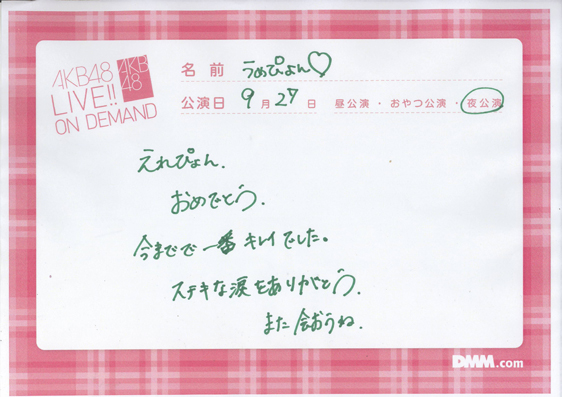 AKB48
LIVE!!
ON DEMAND
AKB
48
名前 うめぴょん♡
公演日 9月27日 昼公演・おやつ公演・夜公演
えれぴょん.
おめでとう.
今までで一番キレイでした。
ステキな涙をありがとう.
また会おうね.
DMM.com